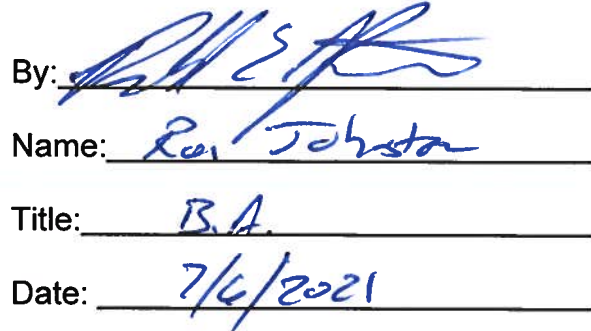 By:
Name: Ron Johnston
Title: B.A.
Date: 7/6/2021